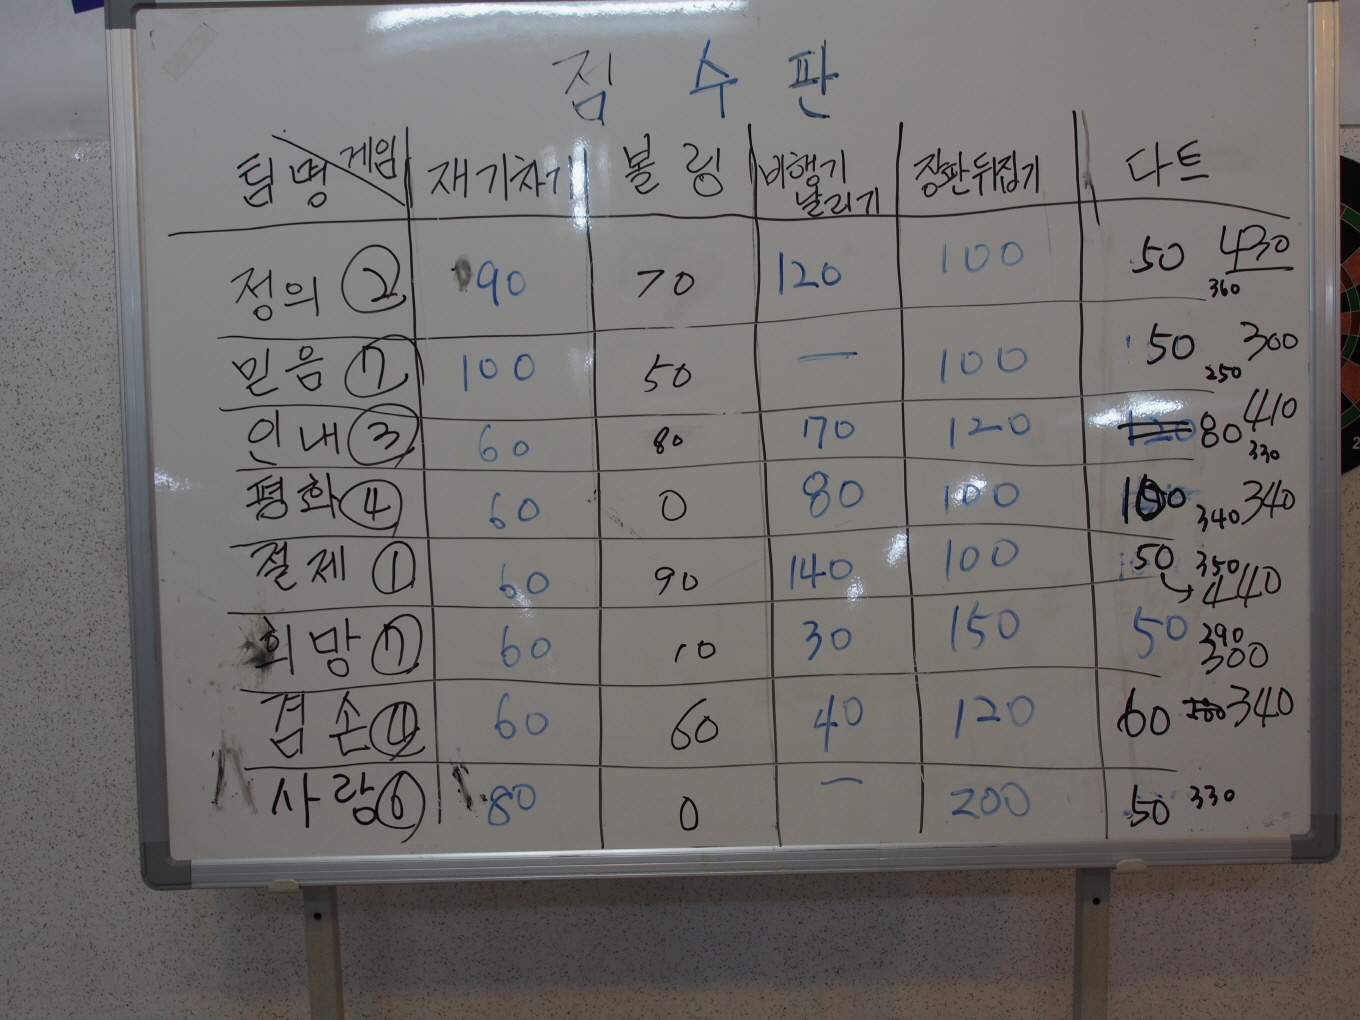 점 수 판
팀명 게임 재기차기 볼링 비행기 날리기 장판뒤집기 다트
정의 ② 90 70 120 100 50 430
360
믿음 ⑦ 100 50 — 100 50 300
250
인내 ③ 60 80 170 120 80 410
330
평화 ④ 60 0 80 100 100 340 340
절제 ① 60 90 140 100 50 350
→ 440
희망 ⑦ 60 10 30 150 50 390
300
겸손 ④ 60 60 40 120 60 340
사랑 ⑥ 80 0 — 200 50 330